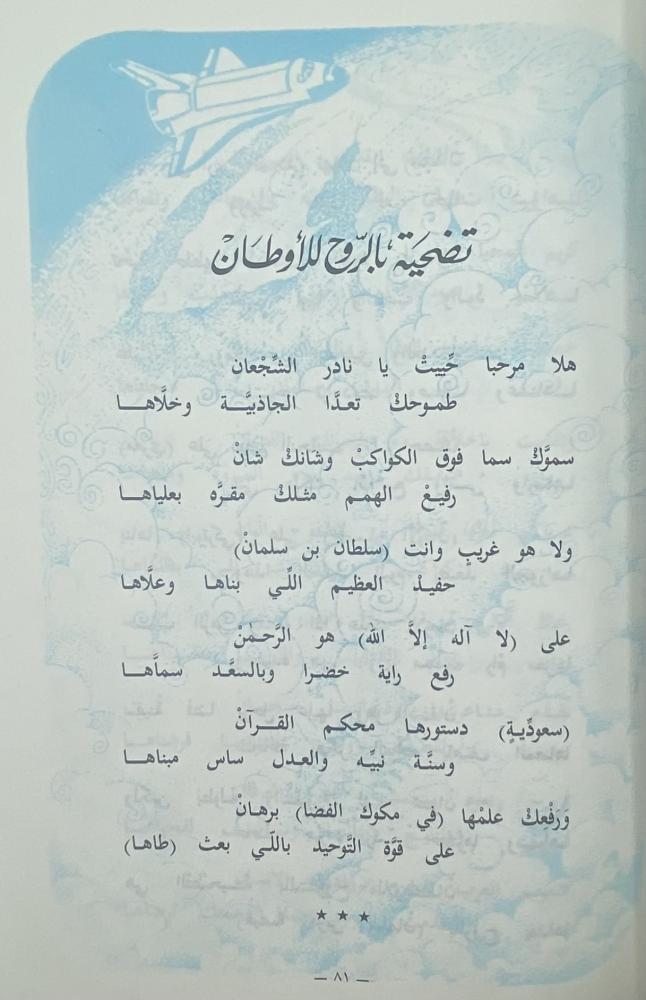 تضحية بالرّوح للأوطان
هلا مرحبا حِّييتْ يا نادر الشِّجْعان
طموحكْ تعدَّا الجاذبيَّة وخلَّاها
سموَّكْ سما فوق الكواكبْ وشانكْ شانْ
رفيعْ الهمم مثلكْ مقرَّه بعلياها
ولا هو غريبٍ وانت (سلطان بن سلمانْ)
حفيد العظيم اللِّي بناها وعلَّاها
على (لا آله إلاَّ الله) هو الرَّحمٰنْ
رفع راية خضرا وبالسعَّد سمَّاها
(سعودِّيةٍ) دستورها محكم القرآنْ
وسنَّة نبيِّه والعدل ساس مبناها
وَرَفْعِكْ علمْها (في مكوك الفضا) برهانْ
على قوَّة التَّوحيد باللّي بعث (طاها)
★ ★ ★
— ٨١ —